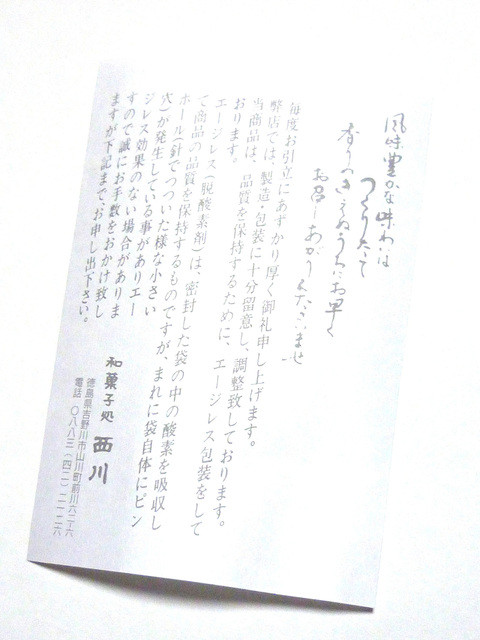 風味豊かな味わいは
つくりたて
香りのきえぬうちにお早く
お召しあがりくださいませ
毎度お引立にあずかり厚く御礼申し上げます。
弊店では、製造・包装に十分留意し、調整致しております。
当商品は、品質を保持するために、エージレス包装をして
おります。
エージレス(脱酸素剤)は、密封した袋の中の酸素を吸収し
て商品の品質を保持するものですが、まれに袋自体にピン
ホール(針でつついた様な小さい
穴)が発生している事がありエー
ジレス効果のない場合がありま
すので誠にお手数をおかけ致し
ますが下記まで、お申し出下さい。
和菓子処 西川
徳島県吉野川市山川町前川六二ノ六
電話 〇八八三(四二)二一二六